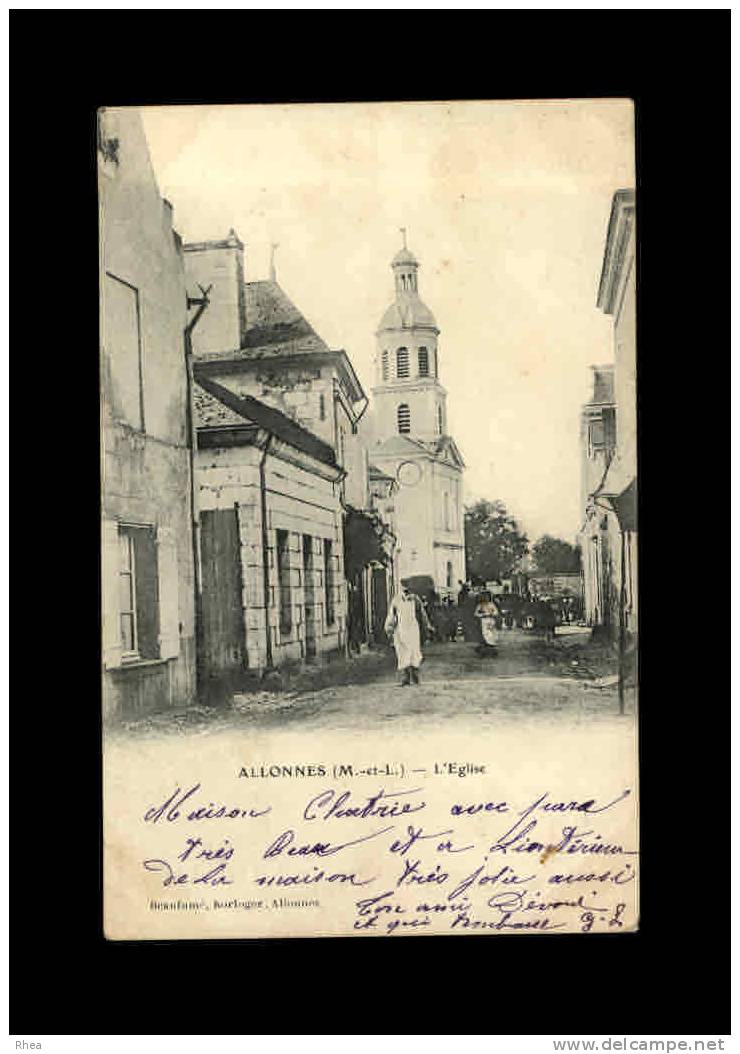 ALLONNES (M.-et-L.) — L'Eglise
Maison Chatrie avec para
très Beau et a Lientérieur
de la maison très jolie aussi
Beaufumé, horloger, Allonnes
Ton ami Dévoué
et qui G. L
Rhea
www.delcampe.net